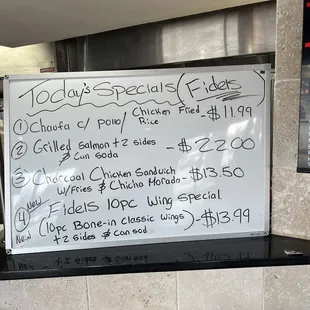 Today's Specials (Fidels)
① Chaufa c/ pollo/ Chicken Fried Rice - $11.99
② Grilled Salmon + 2 sides
& Can soda - $22.00
③ Charcoal Chicken Sandwich
w/Fries & Chicha Morada - $13.50
New ④ Fidels 10pc Wing Special
New (10pc Bone-in classic Wings) - $13.99
+ 2 sides & can sod